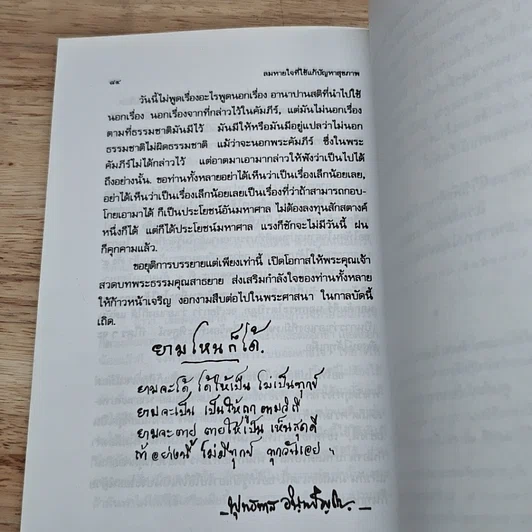 ลมหายใจที่ใช้แก้ปัญหาสุขภาพ
๘๔
วันนี้ไม่พูดเรื่องอะไรพูดนอกเรื่อง อานาปานสติที่นำไปใช้
นอกเรื่อง นอกเรื่องจากที่กล่าวไว้ในคัมภีร์, แต่มันไม่นอกเรื่อง
ตามที่ธรรมชาติมันมีไว้ มันมีให้หรือมันมีอยู่แปลว่าไม่นอก
ธรรมชาติไม่ผิดธรรมชาติ แม้ว่าจะนอกพระคัมภีร์ ซึ่งในพระ
คัมภีร์ไม่ได้กล่าวไว้ แต่อาตมาเอามากล่าวให้ฟังว่าเป็นไปได้
ถึงอย่างนั้น. ขอท่านทั้งหลายอย่าได้เห็นว่าเป็นเรื่องเล็กน้อยเลย,
อย่าได้เห็นว่าเป็นเรื่องเล็กน้อยเลยเป็นเรื่องที่ว่าถ้าสามารถกอบ-
โกยเอามาได้ ก็เป็นประโยชน์อันมหาศาล ไม่ต้องลงทุนสักสตางค์
หนึ่งก็ได้ แต่ก็ได้ประโยชน์มหาศาล แรงก็ชักจะไม่มีวันนี้ ฝน
ก็คุกคามแล้ว.
ขอยุติการบรรยายแต่เพียงเท่านี้ เปิดโอกาสให้พระคุณเจ้า
สวดบทพระธรรมคุณสาธยาย ส่งเสริมกำลังใจของท่านทั้งหลาย
ให้ก้าวหน้าเจริญ งอกงามสืบต่อไปในพระศาสนา ในกาลบัดนี้
เถิด.
ยามไหนก็ได้.
ยามจะได้ ได้ให้เป็น ไม่เป็นทุกข์
ยามจะเป็น เป็นให้ถูก ตามวิถี
ยามจะตาย ตายให้เป็น เห็นสุดดี
ถ้าอย่างนี้ ไม่มีทุกข์ ทุกวันเอย ฯ
พุทธทาส อินฺทปญฺโญ